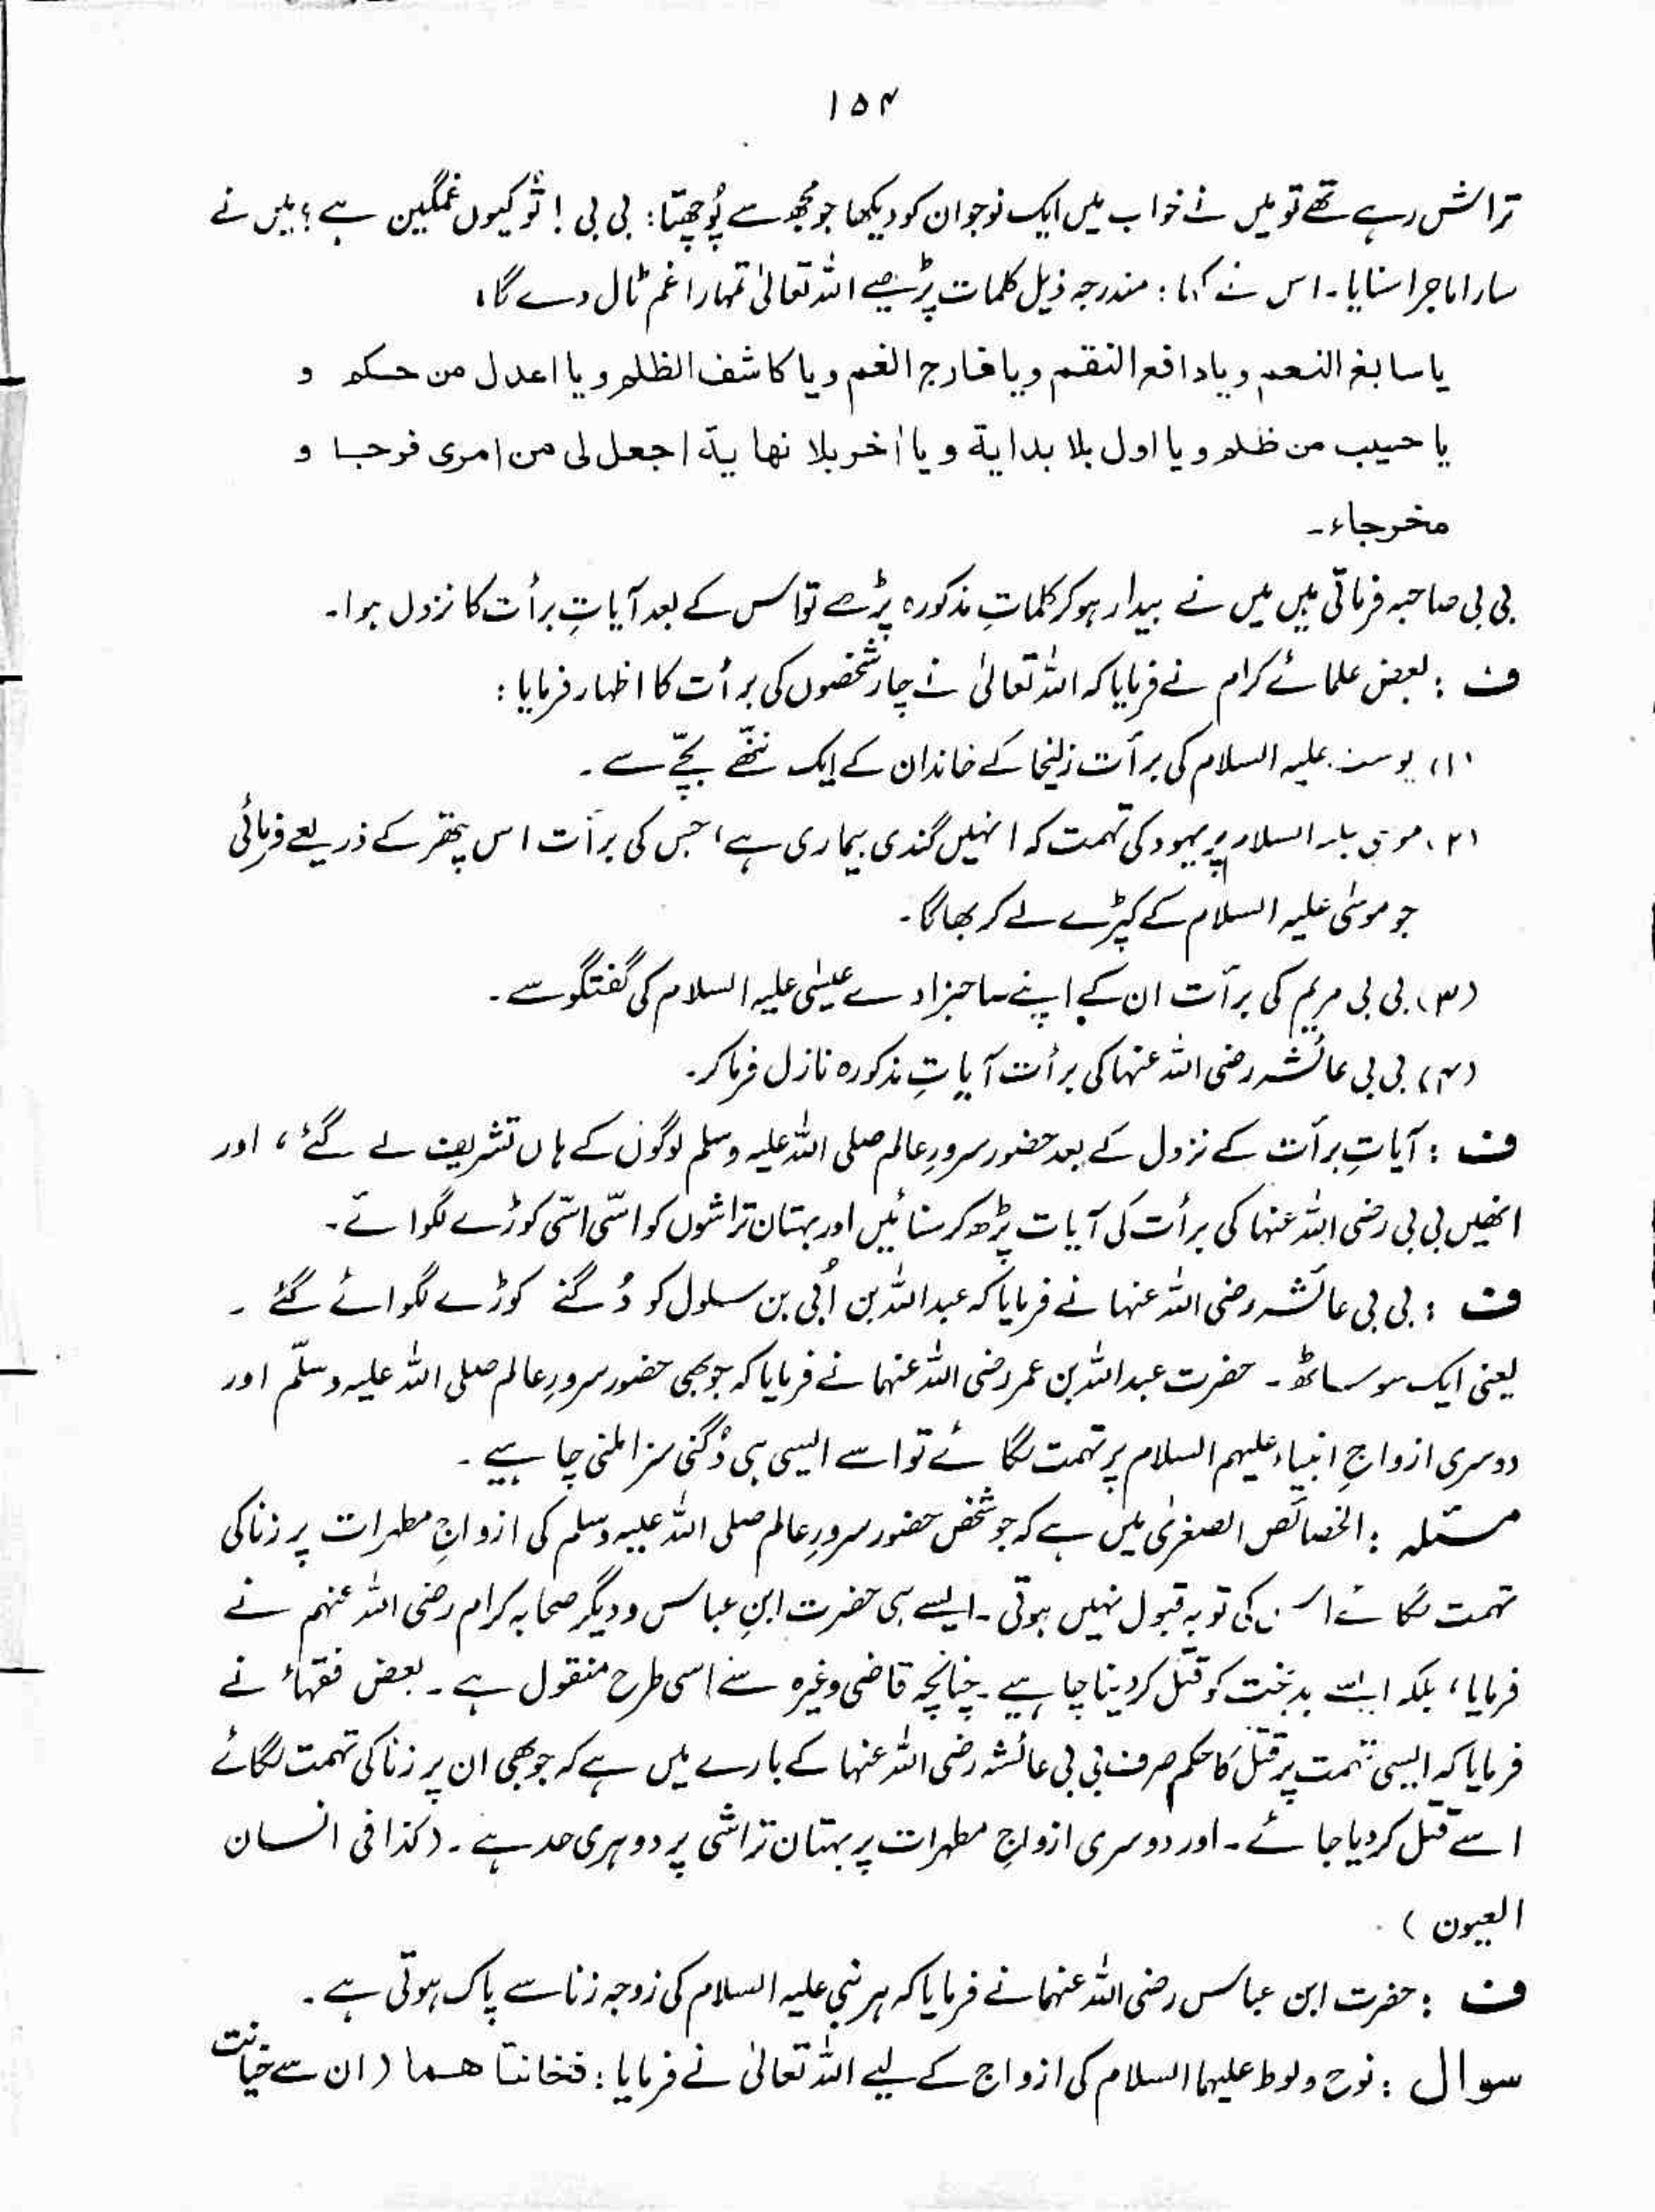 ۱۵۴
تراش رہے تھے تو میں نے خواب میں ایک نوجوان کو دیکھا جو مجھ سے پُوچھتا: بی بی! تُو کیوں غمگین ہے؟ میں نے
سارا ماجرا سنایا۔ اس نے کہا: مندرجہ ذیل کلمات پڑھیے اللہ تعالیٰ تمہارا غم ٹال دے گا،
یا سابغ النعم و یا دافع النقم و یا فارج الغم و یا کاشف الظلم و یا اعدل من حکم و
یا حبیب من ظلم و یا اول بلا بدایة و یا اٰخر بلا نهایة اجعل لی من امری فرجا و
مخرجاء۔
بی بی صاحبہ فرماتی ہیں میں نے بیدار ہو کر کلماتِ مذکورہ پڑھے تو اس کے بعد آیاتِ برأت کا نزول ہوا۔
ف : بعض علمائے کرام نے فرمایا کہ اللہ تعالیٰ نے چار شخصوں کی برأت کا اظہار فرمایا :
(۱) یوسف علیہ السلام کی برأت زلیخا کے خاندان کے ایک ننھّے بچّے سے۔
(۲) موسٰی علیہ السلام پر یہود کی تہمت کہ انہیں گندی بیماری ہے، جس کی برأت اس پتھر کے ذریعے فرمائی
جو موسٰی علیہ السلام کے کپڑے لے کر بھاگا۔
(۳) بی بی مریم کی برأت ان کے اپنے صاحبزادے عیسٰی علیہ السلام کی گفتگو سے۔
(۴) بی بی عائشہ رضی اللہ عنہا کی برأت آیاتِ مذکورہ نازل فرما کر۔
ف : آیاتِ برأت کے نزول کے بعد حضور سرورِ عالم صلی اللہ علیہ وسلم لوگوں کے ہاں تشریف لے گئے، اور
انھیں بی بی رضی اللہ عنہا کی برأت کی آیات پڑھ کر سنائیں اور بہتان تراشوں کو اسّی اسّی کوڑے لگوائے۔
ف : بی بی عائشہ رضی اللہ عنہا نے فرمایا کہ عبداللہ بن اُبی بن سلول کو دُگنے کوڑے لگوائے گئے ۔
یعنی ایک سو ساٹھ۔ حضرت عبداللہ بن عمر رضی اللہ عنہما نے فرمایا کہ جو بھی حضور سرورِ عالم صلی اللہ علیہ وسلّم اور
دوسری ازواجِ انبیاء علیہم السلام پر تہمت لگائے تو اسے ایسی ہی دُگنی سزا ملنی چاہیے ۔
مسئلہ : الخصائص الصغریٰ میں ہے کہ جو شخص حضور سرورِ عالم صلی اللہ علیہ وسلم کی ازواجِ مطہرات پر زنا کی
تہمت لگائے اس کی توبہ قبول نہیں ہوتی۔ ایسے ہی حضرت ابنِ عباس و دیگر صحابہ کرام رضی اللہ عنہم نے
فرمایا، بلکہ ایسے بدبخت کو قتل کر دینا چاہیے۔ چنانچہ قاضی وغیرہ سے اسی طرح منقول ہے۔ بعض فقہاء نے
فرمایا کہ ایسی تہمت پر قتل کا حکم صرف بی بی عائشہ رضی اللہ عنہا کے بارے میں ہے کہ جو بھی ان پر زنا کی تہمت لگائے
اسے قتل کر دیا جائے۔ اور دوسری ازواجِ مطہرات پر بہتان تراشی پر دوہری حد ہے۔ (کذا فی انسان
العیون)
ف : حضرت ابن عباس رضی اللہ عنہما نے فرمایا کہ ہر نبی علیہ السلام کی زوجہ زنا سے پاک ہوتی ہے۔
سوال : نوح و لوط علیہما السلام کی ازواج کے لیے اللہ تعالیٰ نے فرمایا : فخانتا هما (ان سے خیانت